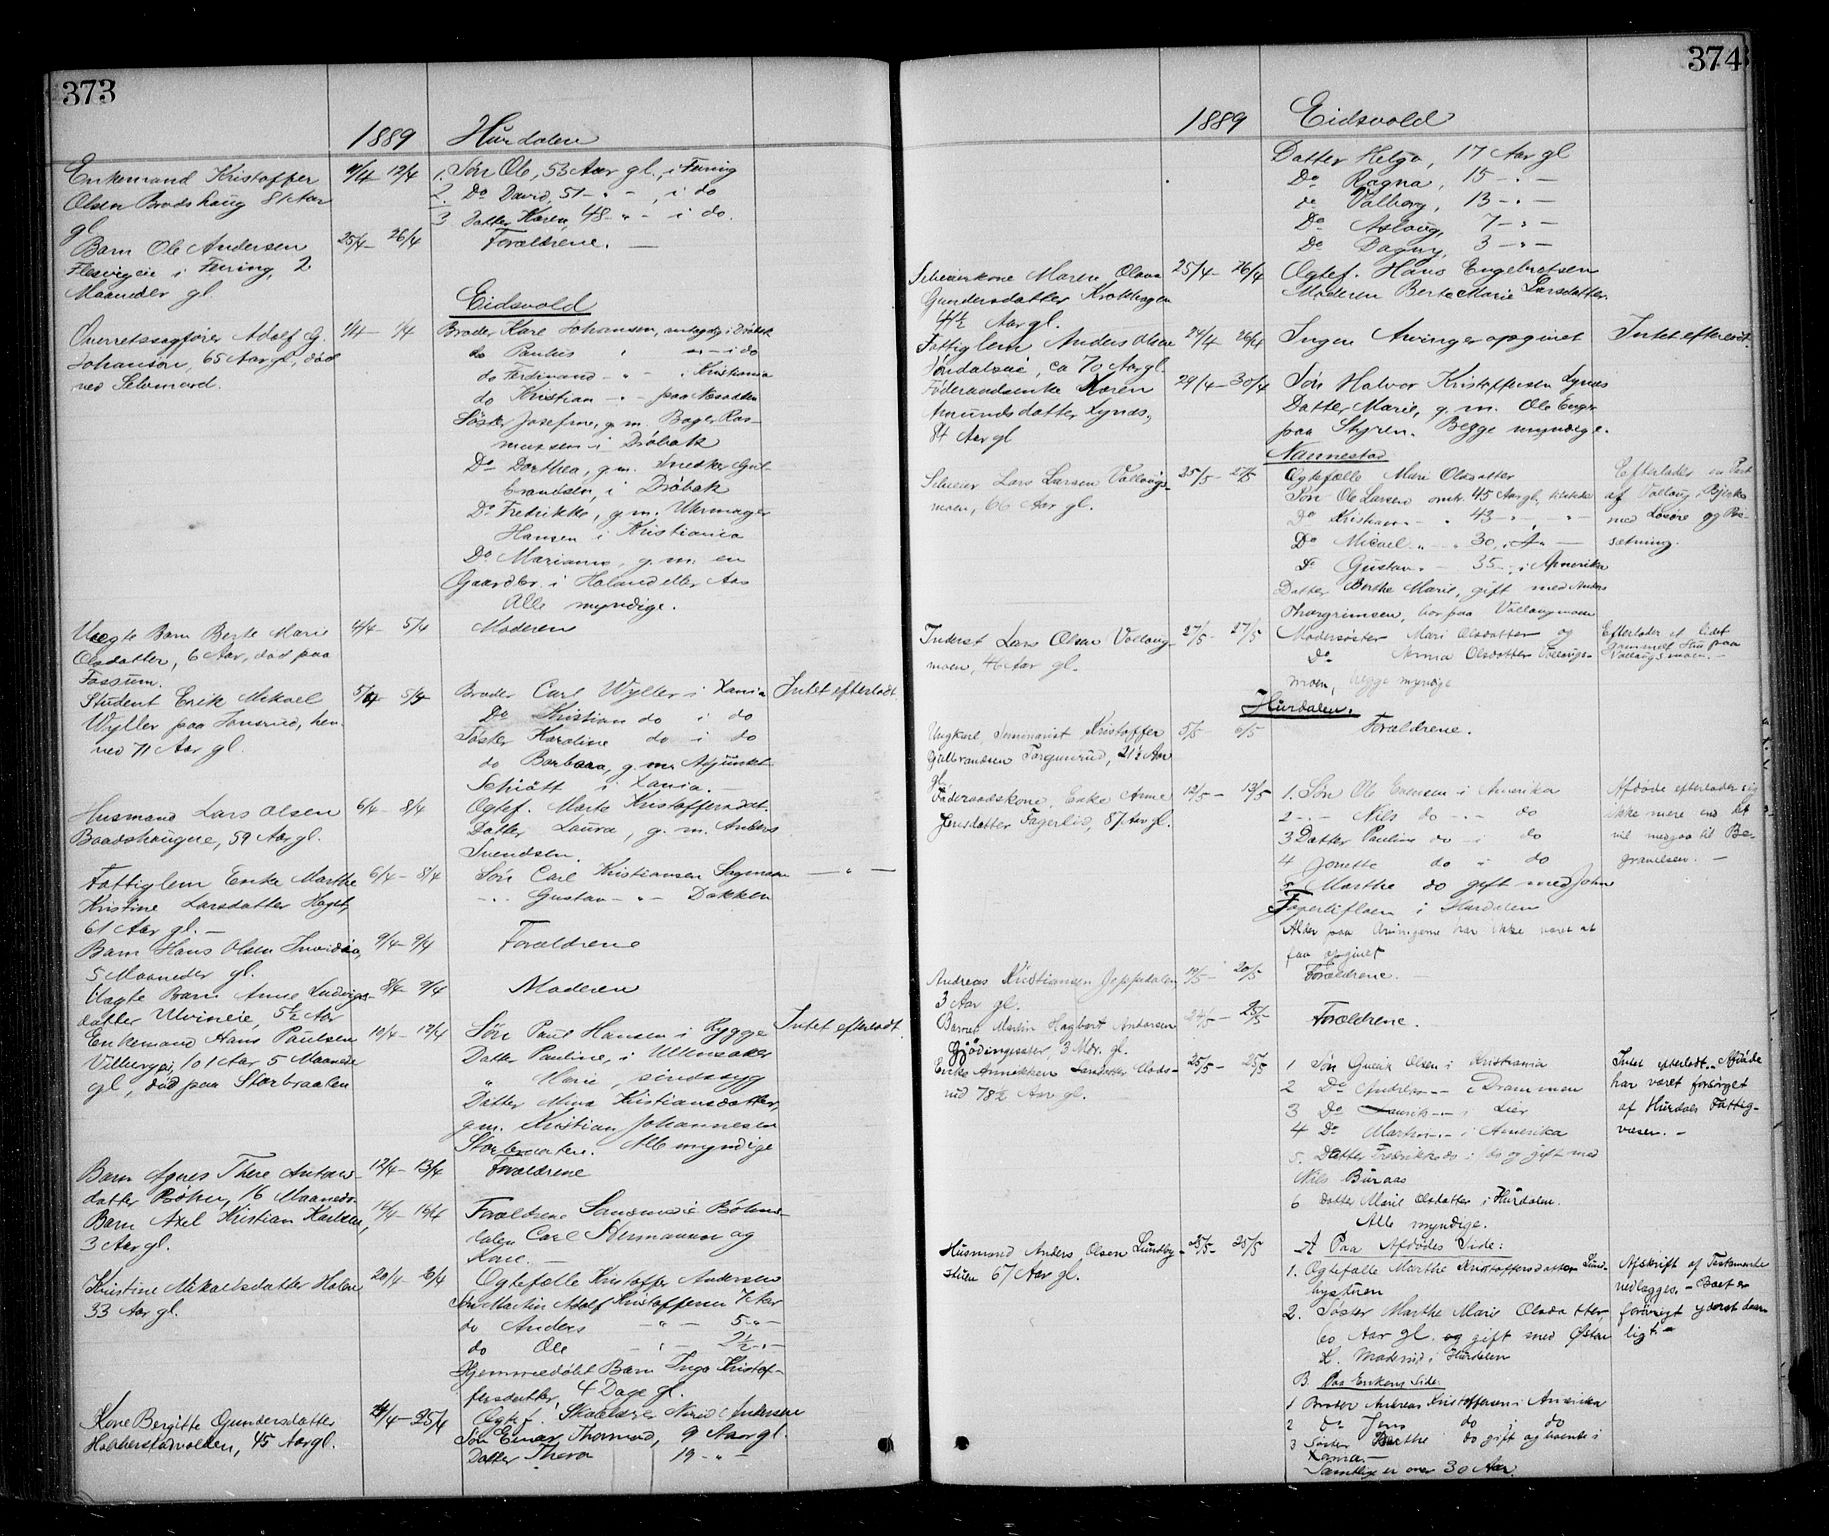 373
1889 Hurdalen
Enkemand Kristoffer 11/4 12/4 1. Søn Ole, 53 Aar gl., i Feiring
Olsen Brodshaug 81 Aar 2. Do David, 51 - " - , i do
gl 3 Datter Karen, 48 - " - i do.
Barn Ole Andersen 25/4 - 26/4 Forældrene. —
i Feiring, 2
Maaneder gl.
Eidsvold
Overretssagfører Adolf G. 1/4 - 1/4 Broder Karl Johansen, i Drøbak
Johansen, 65 Aar gl., død do Paulus i do
ved Selvmord. do Ferdinand - " - " Kristiania
do Kristian - " - paa Næsodden
Søster Josefine, g. m. Bager Ras-
mussen i Drøbak
Do Dorthea, g. m. Snedker Gul-
brandsen, i Drøbak
Do Fredrikke, g. m. Uhrmager
Hansen i Kristiania
Do Marianne, g. m. en
Gaardbr. i Høland eller Aas
Alle myndige.
Uægte Barn Berte Marie 4/4 - 5/4 Moderen
Olsdatter, 6 Aar, død paa
Fossum.
Student Erik Mikael 5/4 - 5/4 Broder Carl Wyller i Xania Intet efterladt
Wyller paa hen- Do Kristian do i do
ved 71 Aar gl. Søster Karoline do i do
do Barbara, g. m. Adjunkt
Schiøtt i Xania. —
Husmand Lars Olsen 6/4 - 8/4 Ogtef. Marte Kristoffersdat.
Baadshaugeie, 59 Aar gl. Datter Laura, g. m. Anders
Svendsen.
Fattiglem Enke Marthe 6/4 - 8/4 Søn Carl Kristiansen Sagmoen — " —
Kristine Larsdatter - " - Gustav - " - Dokken
61 Aar gl. —
Barn Hans Olsen 9/4 - 9/4 Forældrene
5 Maaneder gl.
Uægte Barn Anne Ludvigs- 8/4 - 9/4 Moderen
datter Ulvineie, 5½ Aar
Enkemand Hans Paulsen 10/4 - 12/4 Søn Paul Hansen i Rygge Intet efterladt
101 Aar 5 Maaneder Datter Pauline, i Ullensaker
gl., død paa Storbraaten " Marie, sindssyg
Datter Mina Kristiansdatter,
g. m. Kristian Johannesen
Alle myndige
Barn Agnes There Antons- 12/4 - 13/4 Forældrene
datter Bøhn, 16 Maaneder
Barn Axel Kristian Karlsen, 14/4 - 16/4 Forældrene
3 Aar gl. Carl Hermansen og
Kone. —
Kristine Mikaelsdatter Holen 20/4 - Ogtefælle Kristoffer Andersen
33 Aar gl. Søn Martin Adolf Kristoffersen 7 Aar
do Anders - " - 5 - " -
do Ole - " - 2½ - " -
Hjemmedøbt Barn Inga Kristof-
fersdatter, 4 Dage gl.
Kone Bergitte Gundersdatter 25/4 Ogtef. Andersen
45 Aar gl. Søn Einar Thormod, 9 Aar gl.
Datter Thora 19 - " -
374
1889 Eidsvold
Datter Helga, 17 Aar gl
Do Ragna, 15 - " -
do Valborg, 13 - " -
Do Aslaug, 7 - " -
Do Dagny, 3 - " -
Selveierkone Maren Olava 25/4 - 26/4 Ogtef. Hans Engebretsen
Gundersdatter Moderen Berte Marie Larsdatter.
41½ Aar gl.
Fattiglem Anders Olsen 24/4 - 26/4 Ingen Arvinger opgivet Intet efterladt.
ca 70 Aar gl.
Føderaadsenke Karen 29/4 - 30/4 Søn Halvor Kristoffersen Lynæs
Amundsdatter Lynæs, Datter Marie, g. m. Ole Enger
84 Aar gl paa Styren. Begge myndige.
Nannestad
Selveier Lars Larsen Vollaugs- 25/5 - 27/5 Ogtefælle Mari Olsdatter Efterlader en Part
moen, 66 Aar gl. Søn Ole Larsen omtr. 45 Aar gl. af Vollaug
Do Kristian - " - 43 - " - med Løsøre og Be-
Do Micael - " - 30 - " - sætning.
Do Gustav - " - 35 - i Amerika
Datter Berthe Marie, gift med Anders
Thorgrimsen, bor paa Vollaugmoen
Inderst Lars Olsen Vollaug- 27/5 - 27/5 Modersøster Mari Olsdatter og Efterlader et lidet
moen, 46 Aar gl. Do Anna Olsdatter Vollaugs- gammelt Hus paa
moen, begge myndige Vollaugsmoen. —
Hurdalen.
Ungkarl, Seminarist Kristoffer 5/5 - 6/5 Forældrene.
Gulbrandsen 21½ Aar
gl.
Føderaadskone, Enke Anne 12/5 - 13/5 1. Søn Ole Evensen i Amerika Afdøde efterlader sig
Jensdatter Fagerlid, 87 Aar gl. 2 - " - Nils do - " - do ikke mere end det
3 Datter Pauline do i do vil medgaa til Be-
4 Jonette do i do gravelsen. —
5 Marthe do gift med John
i Hurdalen
Alder paa Arvingerne har ikke været at
faa opgivet
Andreas Kristiansen Jeppedalen 19/5 - 20/5 Forældrene. —
3 Aar gl.
Barnet Martin Hagbart Andersen 24/5 - 25/5 Forældrene.
3 Mdr. gl.
Enke Annikken 25/5 - 25/5 1 Søn Olsen i Kristiania Intet efterladt. Afdøde
rud 78½ Aar gl. 2 Do Andreas - " - i Drammen har været forsørget
3 Do - " - i Lier af Hurdals Fattig-
4 Do Martin - " - i Amerika væsen. —
5. Datter Fredrikke do i do og gift med
Nils Buraas
6 Datter Marie Olsdatter i Hurdalen.
Alle myndige.
Husmand Anders Olsen Lundby- 25/5 - 25/5 A Paa Afdødes Side:
stuen 67 Aar gl. 1. Ogtefælle Marthe Kristoffersdatter Lund- Afskrift af Testamente
bystuen vedlægges. — Boet er
2. Søster Marthe Marie Olsdatter, forøvrigt yderst daar-
60 Aar gl. og gift med Østen ligt. —
H. i Hurdalen
B. Paa Enkens Side.
1 Broder Andreas Kristoffersen i Amerika
2 do Jens do i do
3 Søster Berthe do gift og boende i
Xania. —
Samtlige er over 30 Aar.